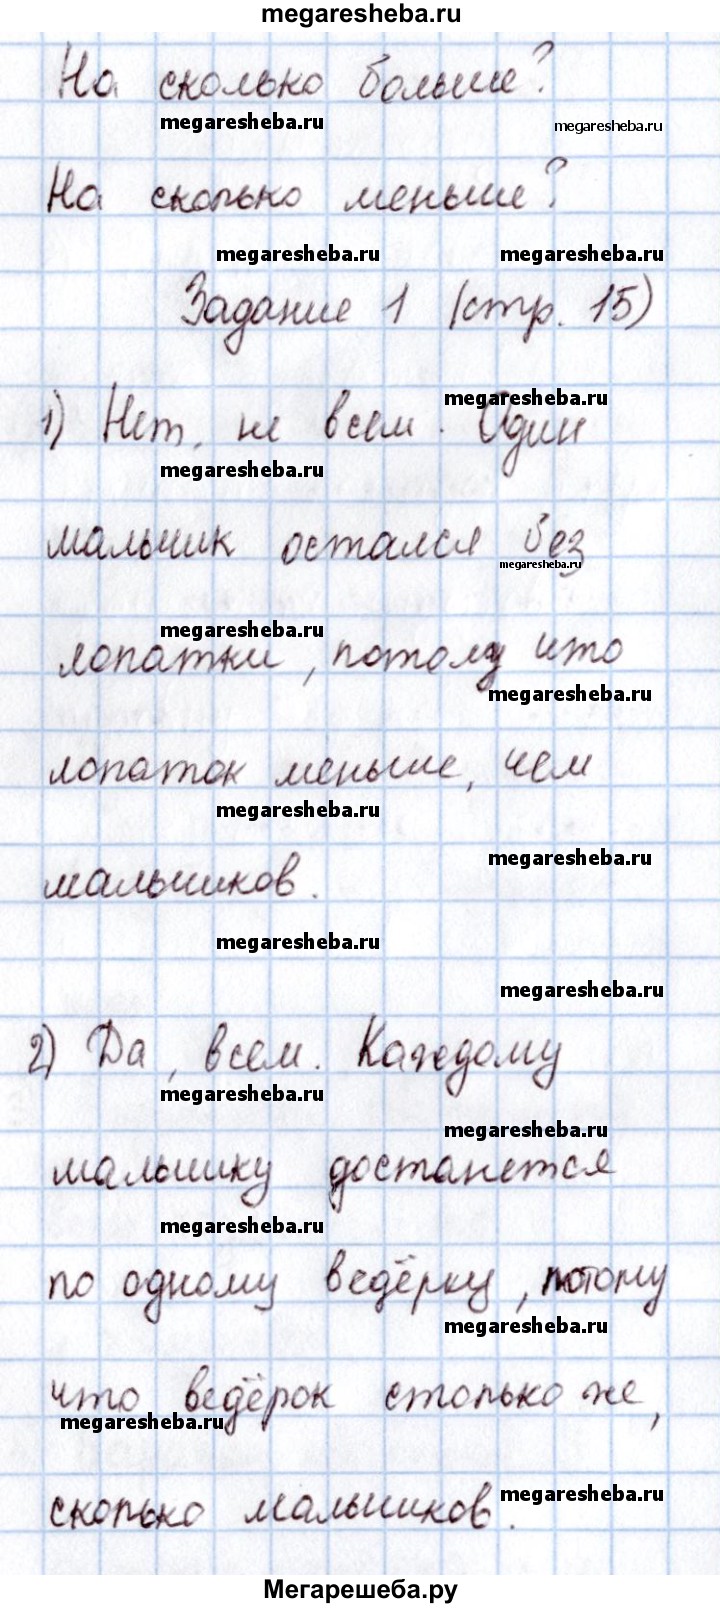 megaresheba.ru
На сколько больше?
megaresheba.ru
megaresheba.ru
На сколько меньше?
megaresheba.ru megaresheba.ru
Задание 1 (стр. 15)
megaresheba.ru
1) Нет, не всем. Один
megaresheba.ru
мальчик остался без
megaresheba.ru
megaresheba.ru
лопатки, потому что
megaresheba.ru
лопаток меньше, чем
megaresheba.ru
megaresheba.ru
мальчиков.
megaresheba.ru
megaresheba.ru
2) Да, всем. Каждому
megaresheba.ru
megaresheba.ru
мальчику достанется
megaresheba.ru
по одному ведёрку, потому
megaresheba.ru
что ведёрок столько же,
megaresheba.ru
megaresheba.ru
сколько мальчиков.
Мегарешеба.ру